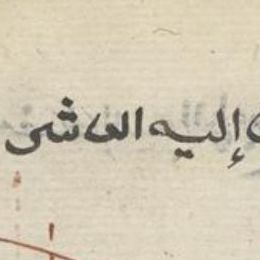 إليه العاشى